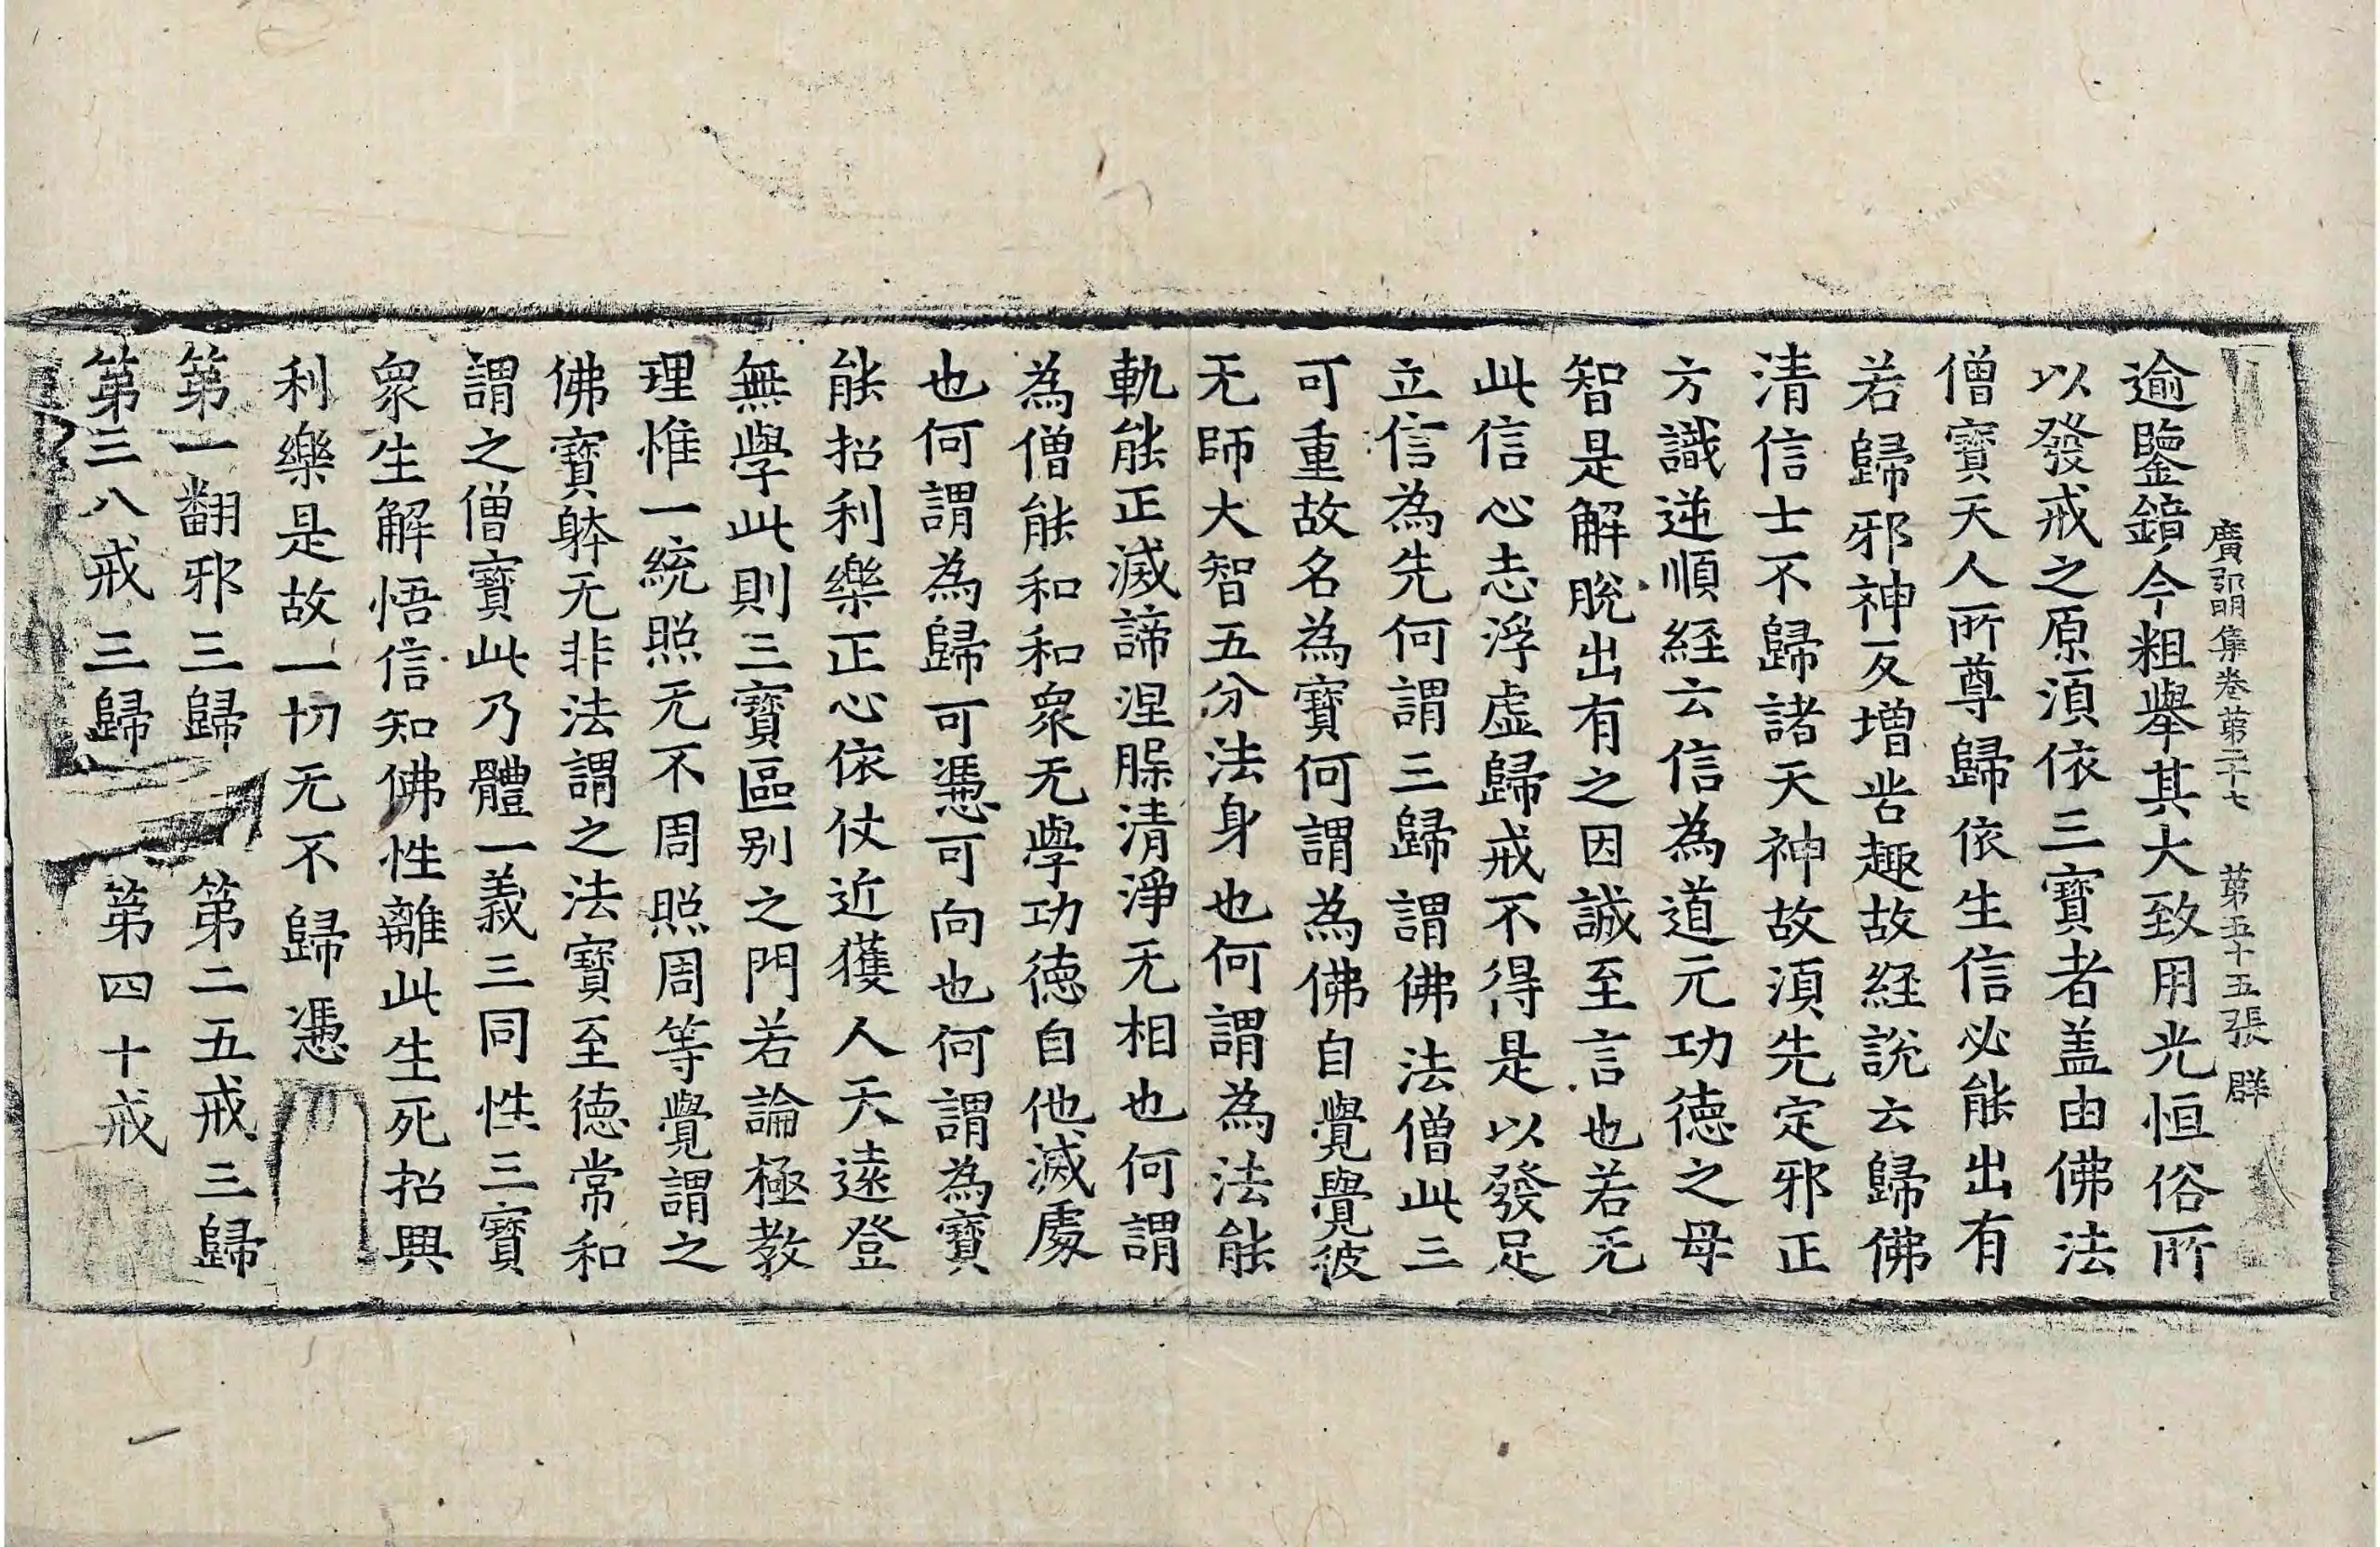 廣弘明集卷第二十七 第五十五張 群
逾鑒鏡今粗舉其大致用光恒俗所
以發戒之原湏依三寶者盖由佛法
僧寶天人所尊歸依生信必能出有
若歸邪神反增苦趣故経說云歸佛
清信士不歸諸天神故湏先定邪正
方識逆順経云信為道元功德之母
智是解脫出有之因誠至言也若无
此信心志浮虛歸戒不得是以發足
立信為先何謂三歸謂佛法僧此三
可重故名為寶何謂為佛自覺覺彼
无師大智五分法身也何謂為法能
軌能正滅諦涅槃清淨无相也何謂
為僧能和和衆无學功德自他滅處
也何謂為歸可憑可向也何謂為寶
能招利樂正心依仗近獲人天遠登
無學此則三寶區别之門若論極教
理惟一統照无不周照周等覺謂之
佛寶躰无非法謂之法寶至德常和
謂之僧寶此乃體一義三同性三寶
衆生解悟信知佛性離此生死招興
利樂是故一切无不歸憑
第一翻邪三歸 第二五戒三歸
第三八戒三歸 第四十戒